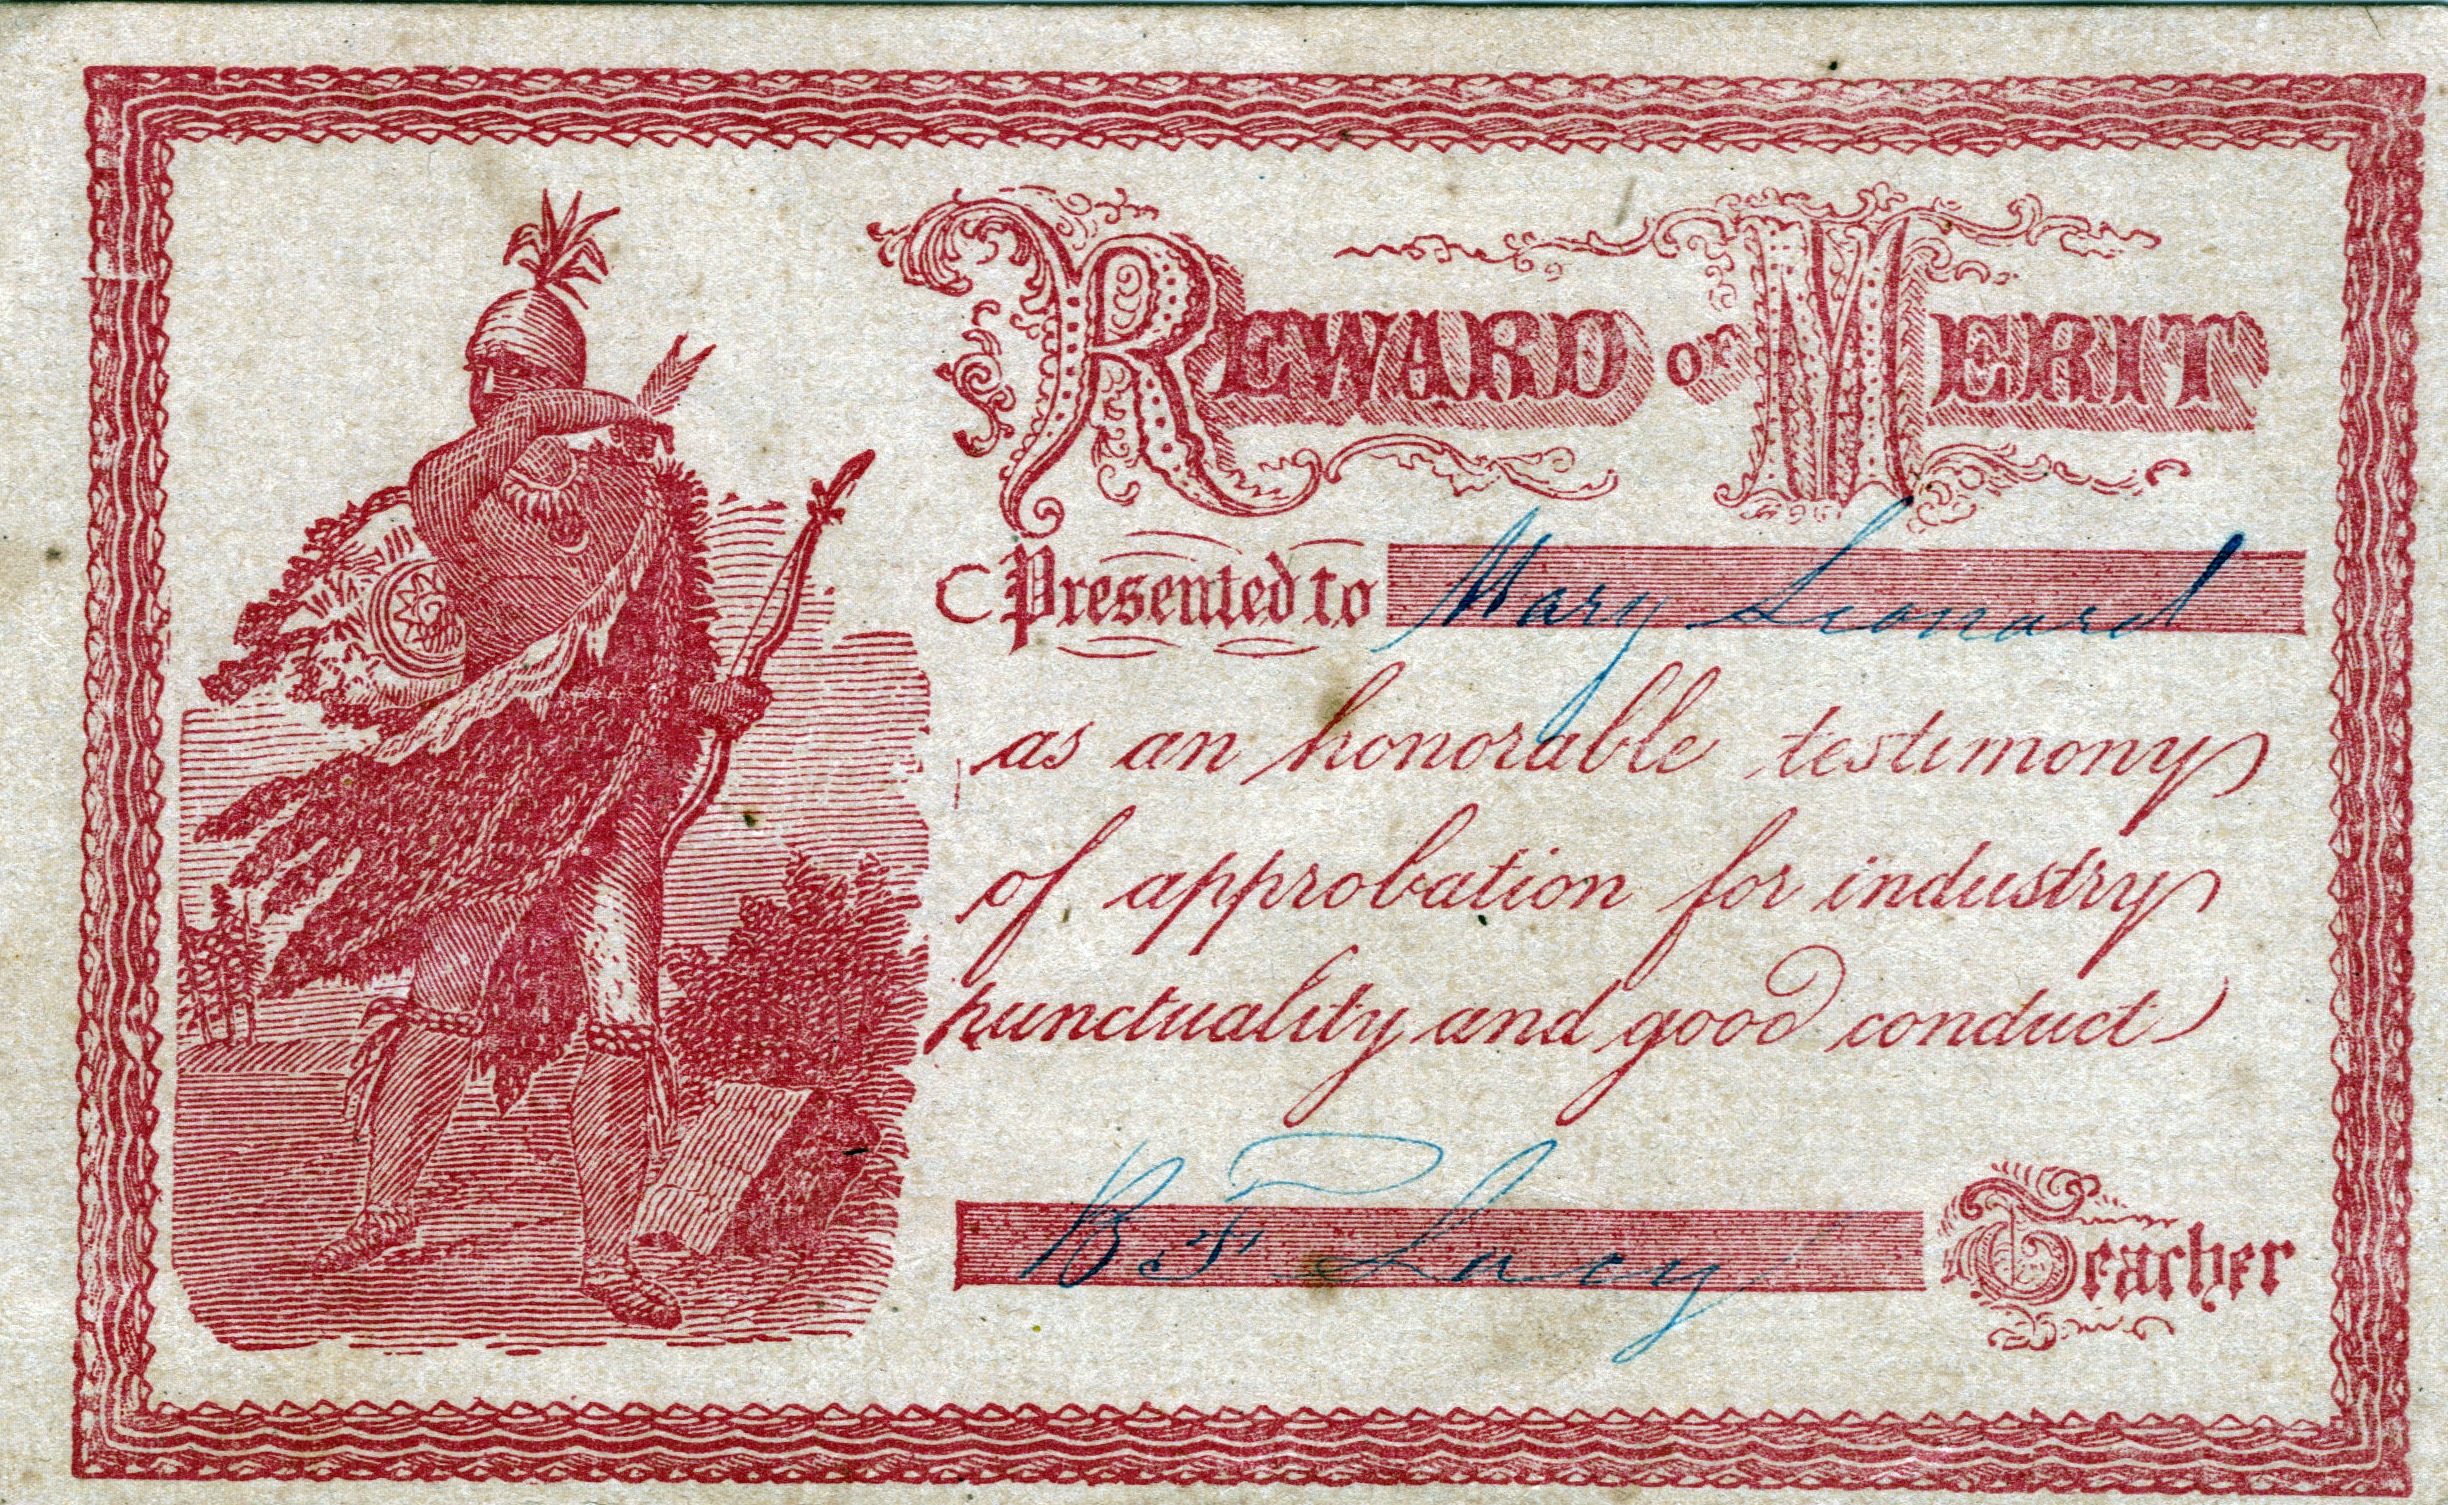 REWARD OF MERIT
Presented to Mary Leonard
as an honorable testimony
of approbation for industry
punctuality and good conduct
B F Lacy Teacher